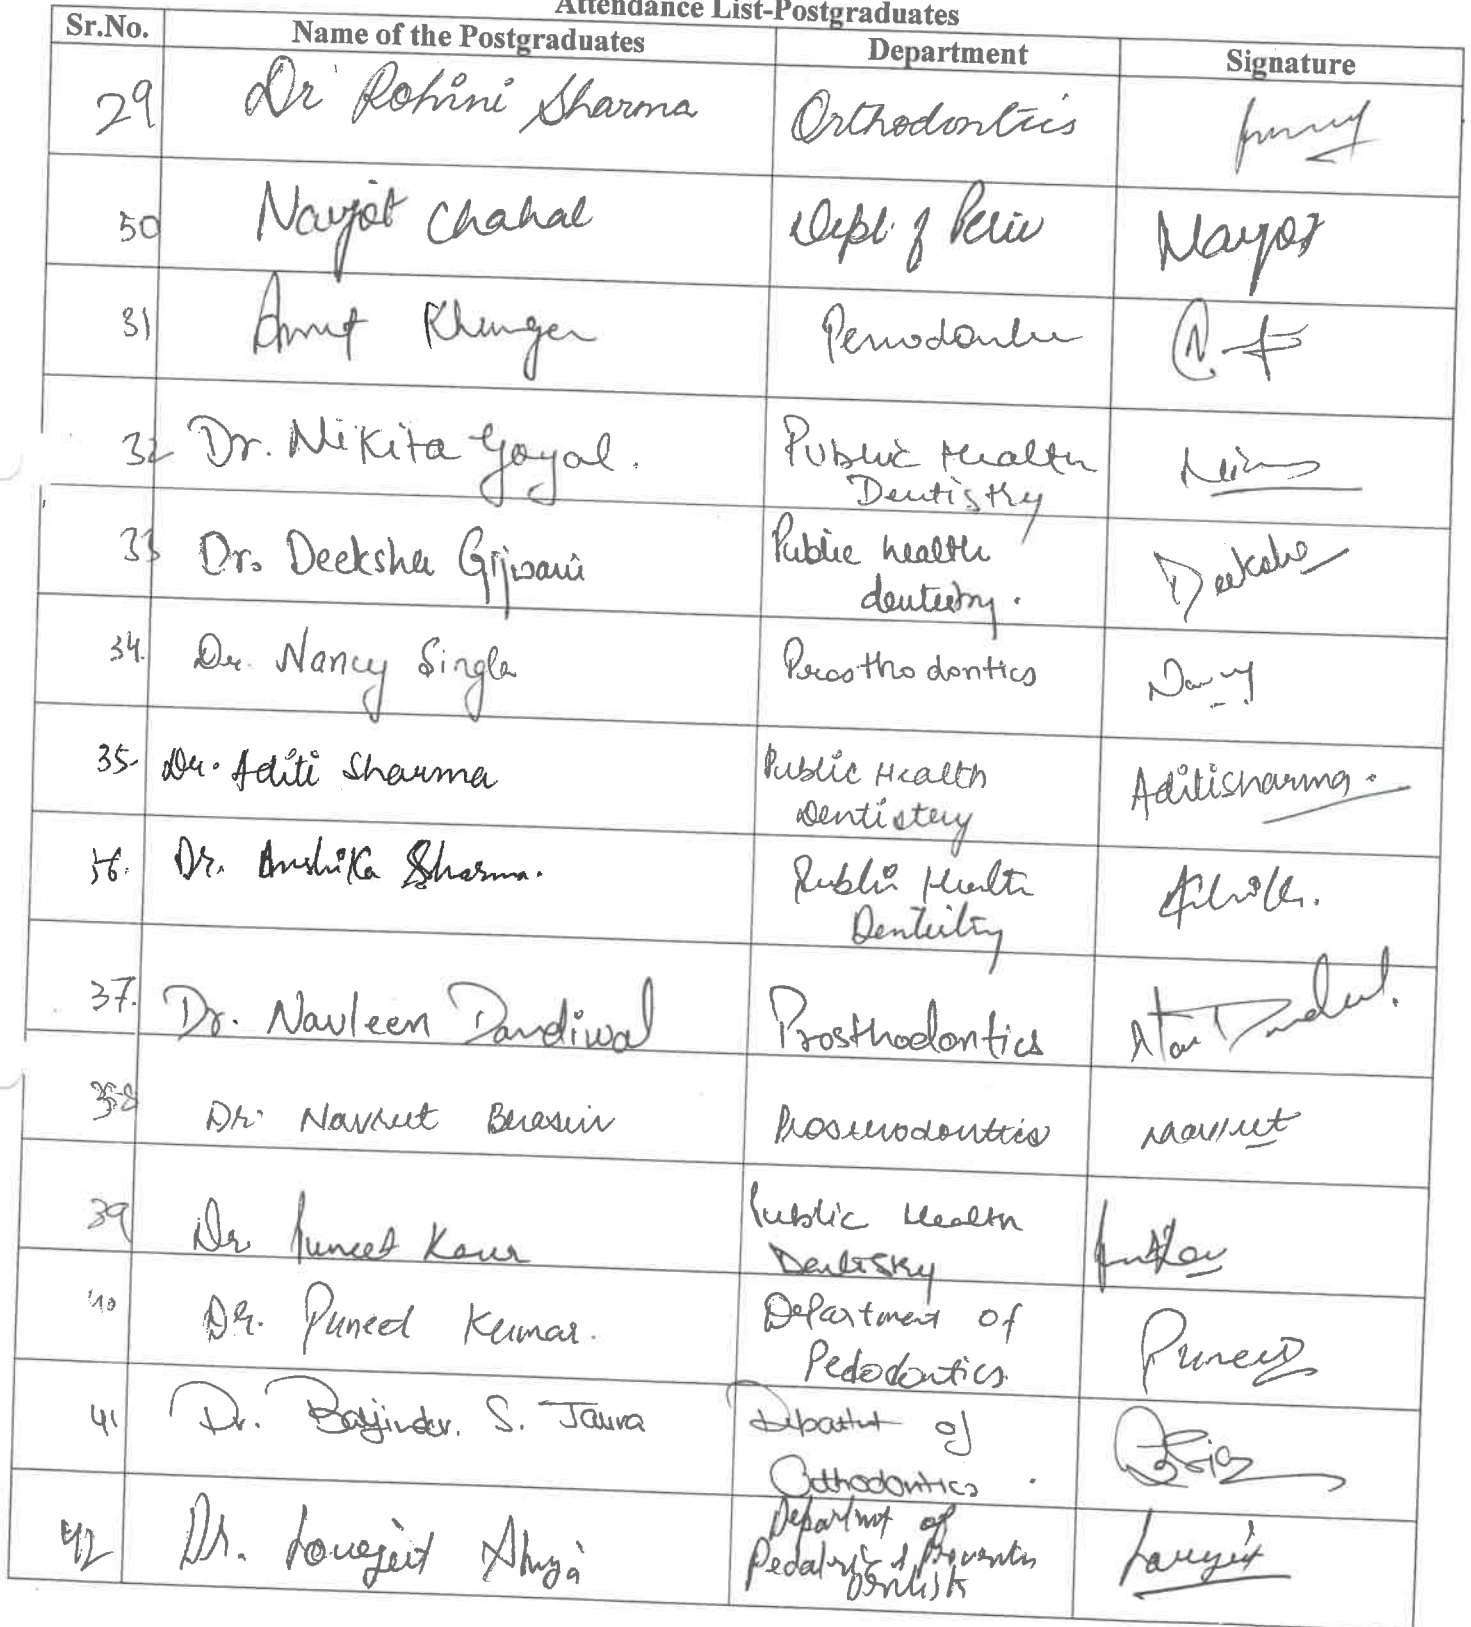 Attendance List-Postgraduates
Sr.No. Name of the Postgraduates Department Signature
29 Dr Rohini Sharma Orthodontics
50 Navjot Chahal Dept. of Perio Navjot
31 Amit Khunger Periodontic
32 Dr. Nikita Goyal. Public Health
Dentistry
33 Dr. Deeksha Gijwani Public health Deeksha
dentistry.
34. Dr. Nancy Singla Prosthodontics Nancy
35. Dr. Aditi Sharma Public Health Aditisharma.
Dentistry
36. Dr. Anshika Sharma. Public Health
Dentistry
37. Dr. Navleen Dandiwal Prosthodontics
38 Dr. Navreet Bhasin Prosthodontics Navreet
39 Dr. Puneet Kaur Public Health
Dentistry
40 Dr. Puneet Kumar. Department of Puneet
Pedodontics
41 Dr. Baljinder. S. Jaura Department of
Orthodontics.
42 Dr. Lovejeet Ahuja Department of Lovejeet
Pediatric & Preventive
Dentistry